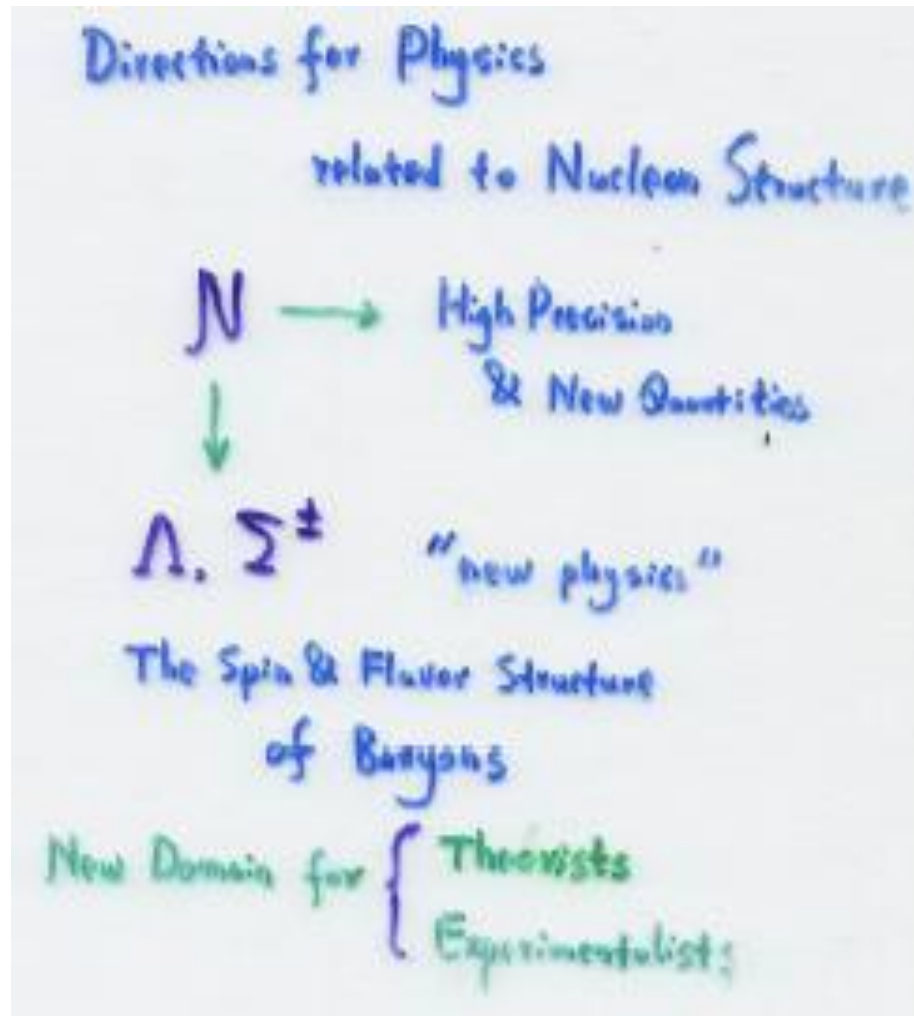 Directions for Physics
related to Nucleon Structure
N → High Precision
↓ & New Quantities
Λ, Σ± "new physics"
The Spin & Flavor Structure
of Baryons
New Domain for { Theorists
Experimentalists